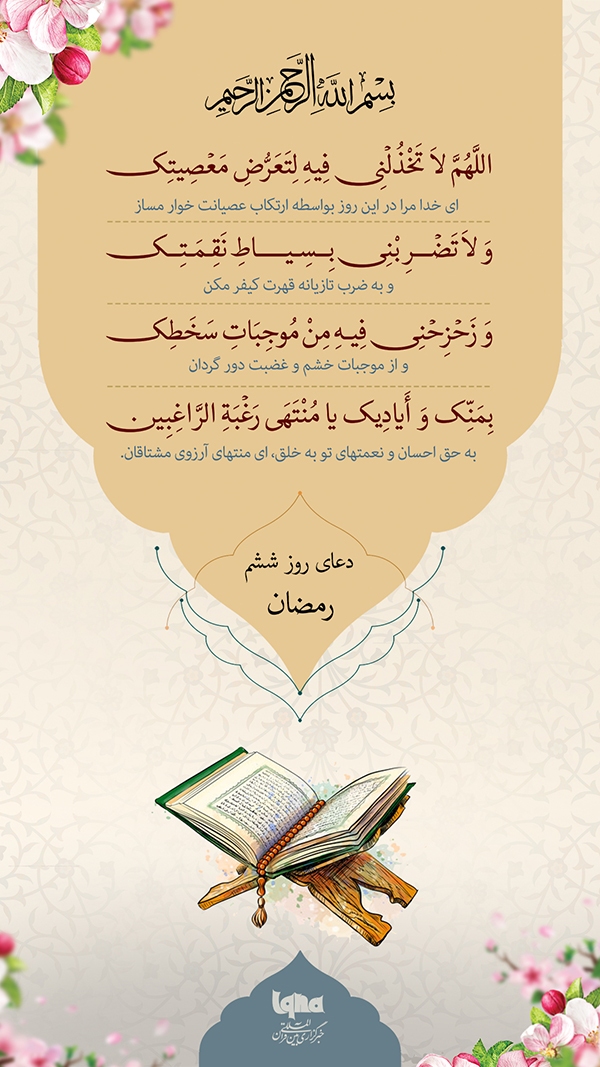 بِسْمِ اللَّهِ الرَّحْمنِ الرَّحِيمِ
اللَّهُمَّ لاَ تَخْذُلْنِی فِیهِ لِتَعَرُّضِ مَعْصِیَتِک
ای خدا مرا در این روز بواسطه ارتکاب عصیانت خوار مساز
وَ لاَ تَضْرِبْنِی بِسِیَاطِ نَقِمَتِک
و به ضرب تازیانه قهرت کیفر مکن
وَ زَحْزِحْنِی فِیهِ مِنْ مُوجِبَاتِ سَخَطِک
و از موجبات خشم و غضبت دور گردان
بِمَنِّک وَ أَیادِیک یا مُنْتَهَی رَغْبَةِ الرَّاغِبِین
به حق احسان و نعمتهای تو به خلق، ای منتهای آرزوی مشتاقان.
دعای روز ششم
رمضان
Iqna
خبرگزاری بین المللی قرآن